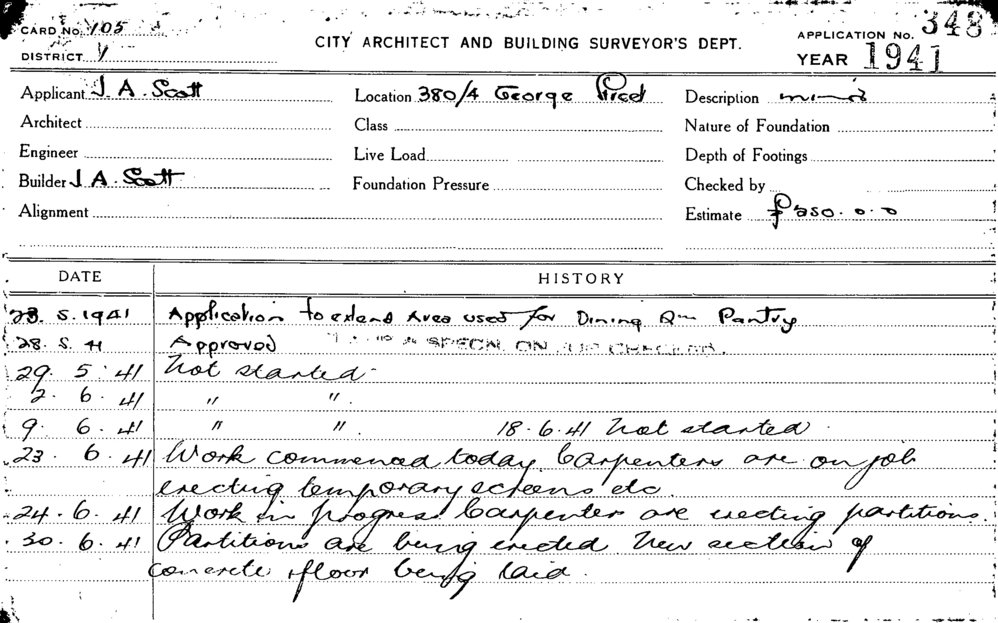 CARD No. 105
DISTRICT Y
CITY ARCHITECT AND BUILDING SURVEYOR'S DEPT.
APPLICATION No. 348
YEAR 1941
Applicant J. A. Scott
Location 380/4 George Street
Description
Architect
Class
Nature of Foundation
Engineer
Live Load
Depth of Footings
Builder J. A. Scott
Foundation Pressure
Checked by
Alignment
Estimate £250.0.0
DATE HISTORY
23. 5. 1941 Application to extend Area used for Dining Rm Pantry
28. 5. 41 Approved SPECN. ON JOB CHECKED.
29 5. 41 Not started
2. 6. 41 " "
9. 6. 41 " " 18.6.41 Not started
23. 6. 41 Work commenced today. Carpenters are on job
erecting temporary screens etc.
24. 6. 41 Work in progress Carpenters are erecting partitions.
30. 6. 41 Partitions are being erected New section of
concrete floor being laid.